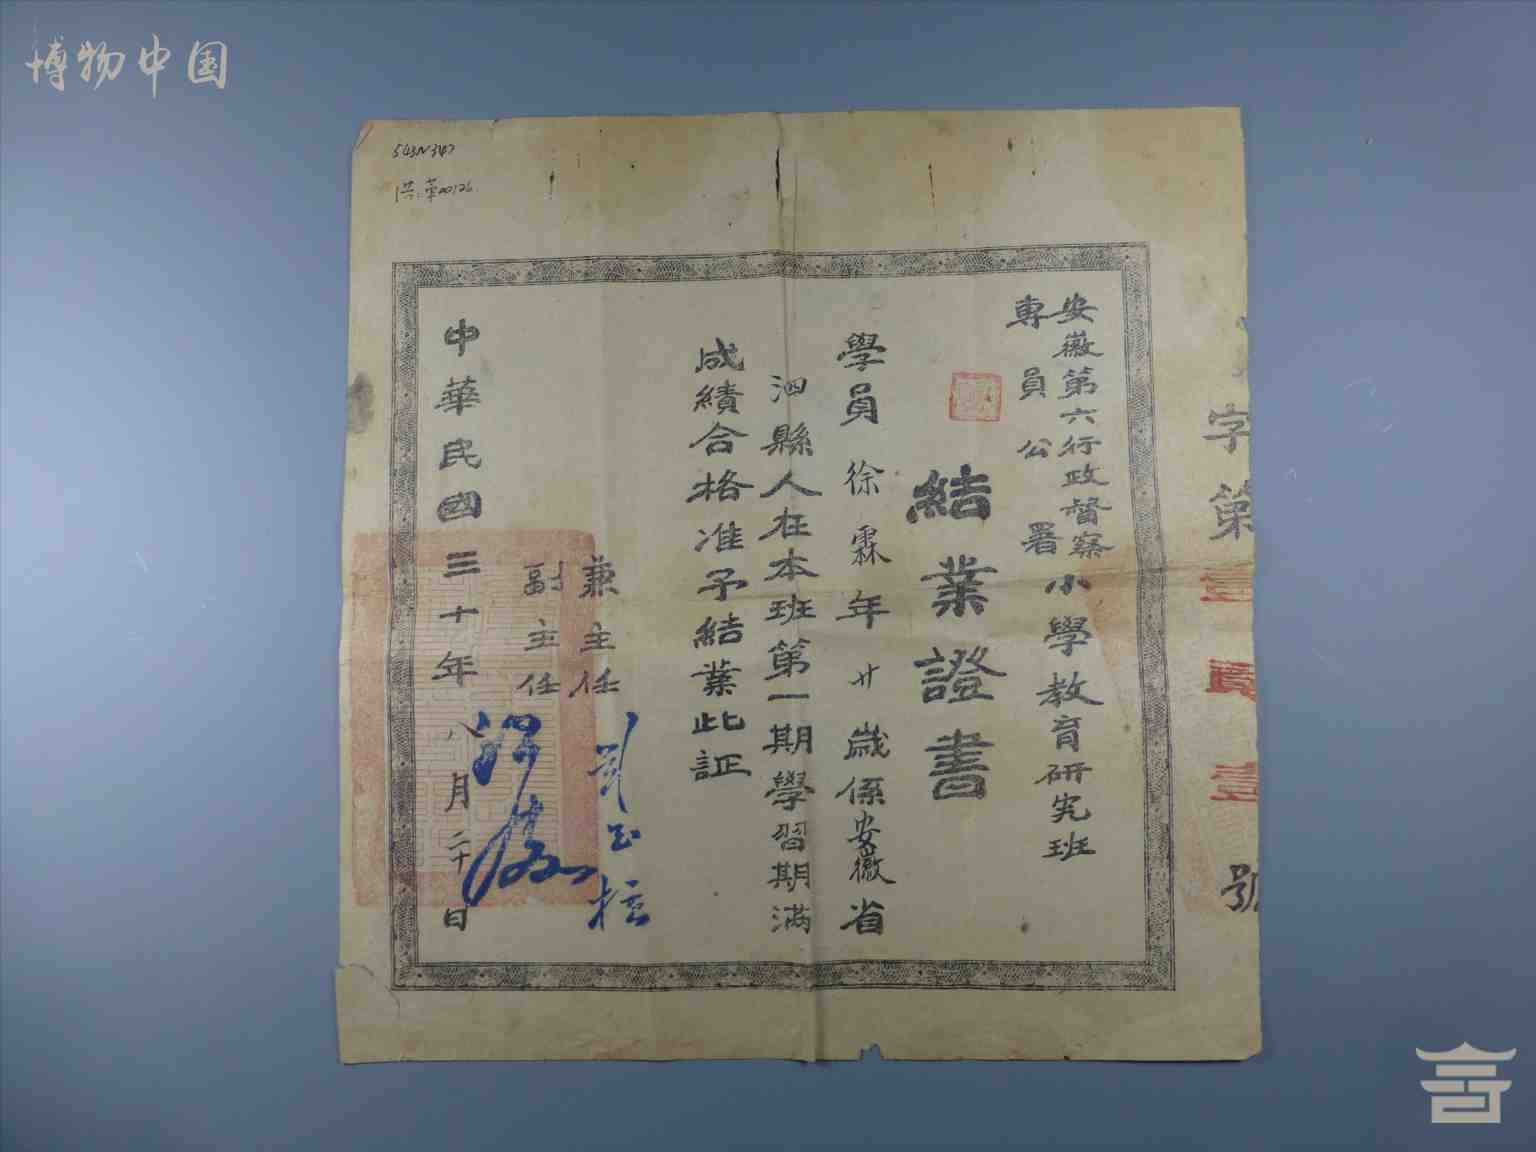 博物中国
字第
號
安徽第六行政督察
專員公署
小學教育研究班
結業證書
學員徐霖年廿歲係安徽省
泗縣人在本班第一期學習期滿
成績合格准予結業此証
兼主任
副主任
中華民國三十年八月二十日